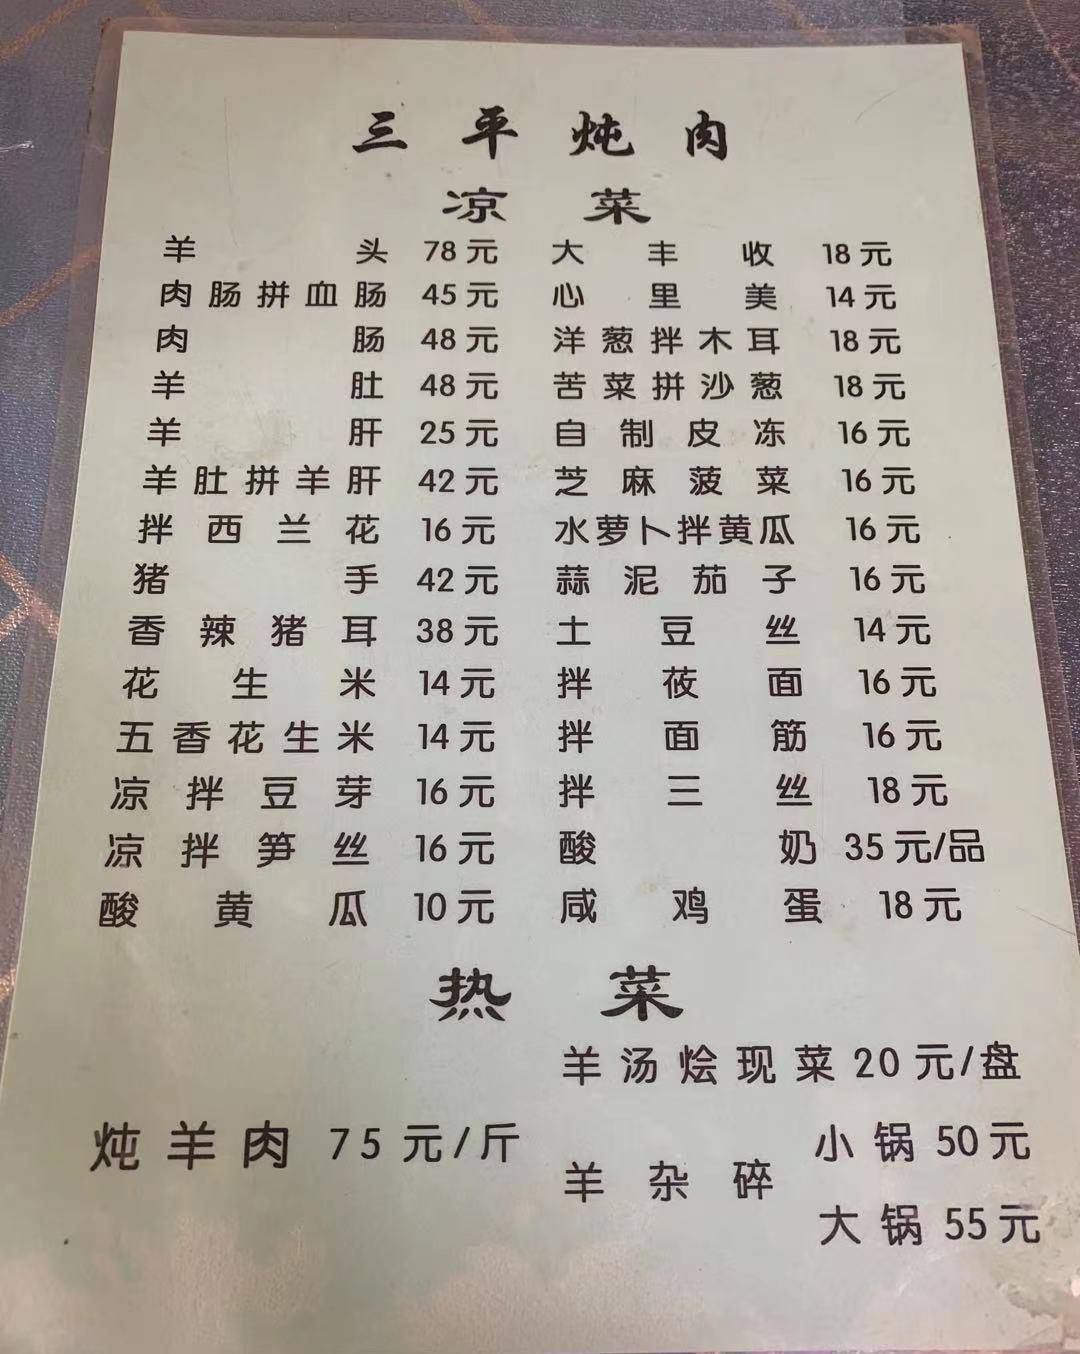 三平炖肉
凉菜
羊头 78元 大丰收 18元
肉肠拼血肠 45元 心里美 14元
肉肠 48元 洋葱拌木耳 18元
羊肚 48元 苦菜拼沙葱 18元
羊肝 25元 自制皮冻 16元
羊肚拼羊肝 42元 芝麻菠菜 16元
拌西兰花 16元 水萝卜拌黄瓜 16元
猪手 42元 蒜泥茄子 16元
香辣猪耳 38元 土豆丝 14元
花生米 14元 拌莜面 16元
五香花生米 14元 拌面筋 16元
凉拌豆芽 16元 拌三丝 18元
凉拌笋丝 16元 酸奶 35元/品
酸黄瓜 10元 咸鸡蛋 18元
热菜
羊汤烩现菜 20元/盘
炖羊肉 75元/斤
羊杂碎 小锅 50元
大锅 55元